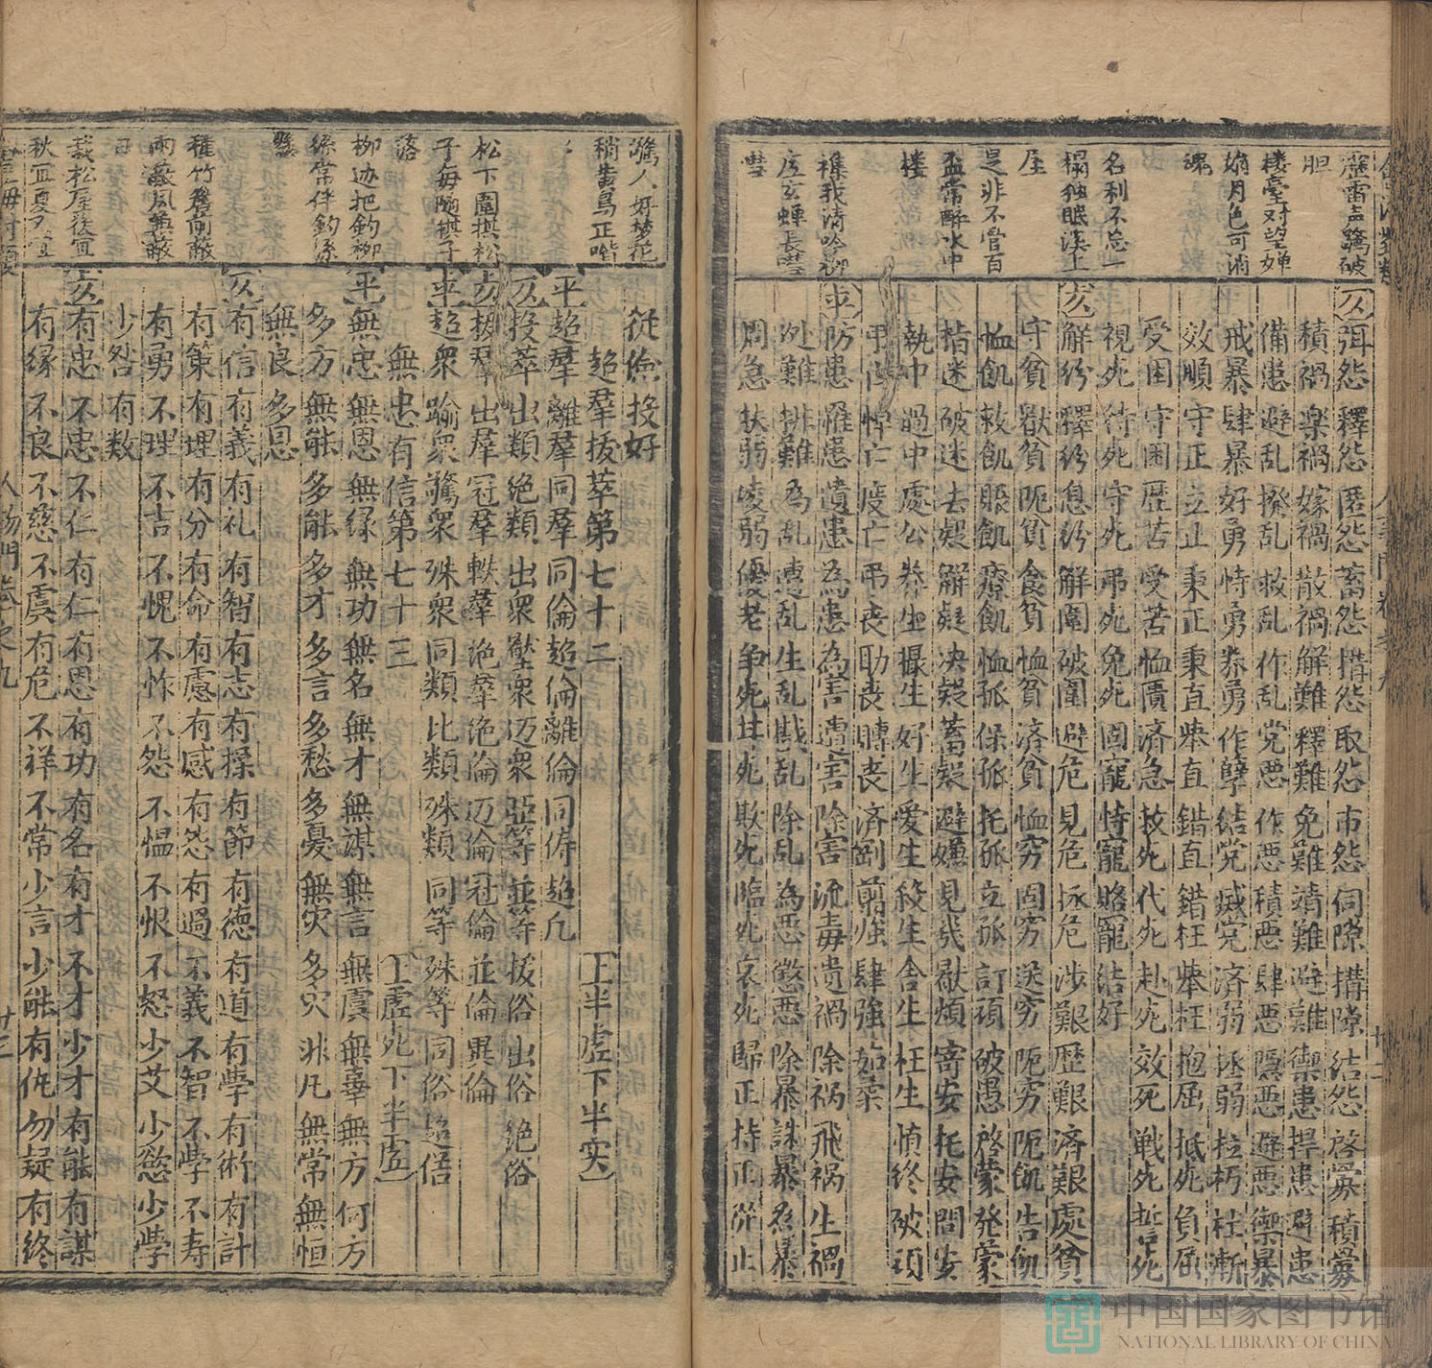 靂雷盂驚破
胆
樓臺对望嬋
娟月色可消
魂
名利不忘一
榻独眠溪上
屋
是非不管百
盃常醉水中
楼
襟我清吟柳
底玄蝉長噤
雪
仄 弭怨 釋怨 匿怨 畜怨 搆怨 取怨 市怨 伺隙 搆隙 结怨 啓釁 積釁
積禍 楽禍 嫁禍 散禍 解難 釋難 免難 靖難 避難 禦患 捍患 避患
備患 避乱 撥乱 救乱 作乱 党恶 作恶 積恶 肆恶 隱恶 避恶 禦暴
戒暴 肆暴 好勇 恃勇 养勇 作孽 结党 济弱 拯弱 拉朽 杜漸
效順 守正 立正 秉正 秉直 举直 錯直 錯枉 举枉 抱屈 抵死 負屈
受困 守困 歷苦 受苦 恤匱 济急 救死 代死 赴死 效死 戦死 誓死
視死 待死 守死 弔死 免死 固寵 恃寵 賂寵 结好
仄 解紛 釋紛 息紛 解圍 破圍 避危 見危 拯危 涉艱 歷艱 濟艱 處貧
守貧 厭貧 阨貧 食貧 恤貧 济貧 恤穷 固穷 送穷 阨穷 阨飢 告飢
恤飢 救飢 賑飢 療飢 恤孤 保孤 托孤 立孤 訂頑 破愚 啓蒙 発蒙
指迷 破迷 去疑 解疑 决疑 蓄疑 避嫌 見幾 厭煩 寄安 托安 問安
執中 過中 處公 养生 攝生 好生 愛生 殺生 舍生 枉生 慎終 破頑
悼亡 度亡 弔丧 助丧 賻丧 济剛 剪强 肆强 茹柔
平 防患 罹患 遺患 為患 為害 遭害 除害 流毒 遺禍 除祸 飛祸 生禍
处難 排難 為乱 遭乱 生乱 戡乱 除乱 為恶 懲恶 除暴 誅暴 為暴
周急 扶弱 凌弱 優老 争死 甘死 欺死 臨死 哀死 歸正 持正 從正
驚人好梦花
稍黄鳥正喈
松下圍棋松
子每随棋子
落
柳边把釣柳
絲常伴釣絲
懸
種竹舊前蔽
雨蔽風無蔽
日
栽松屋後宜
秋宜夏又宜
從儉 投好
超羣拔萃第七十二 上半虚下半实
平 超羣 離羣 同羣 同倫 超倫 離倫 同俦 超凡
仄 拔萃 出類 絶類 出衆 壓衆 迈衆 亞等 並等 拔俗 出俗 绝俗
仄 拔羣 出羣 冠羣 軼羣 絶羣 絶倫 迈倫 冠倫 並倫 異倫
平 超衆 踰衆 驚衆 殊衆 同類 比類 殊類 同等 殊等 同俗 超倍
無忠有信第七十三 上虚死下半虚
平 無忠 無恩 無緑 無功 無名 無才 無謀 無言 無虞 無辜 無方 何方
多方 無能 多能 多才 多言 多愁 多憂 無灾 多灾 非凡 無常 無恒
無良 多思
仄 有信 有義 有礼 有智 有志 有操 有節 有德 有道 有學 有術 有計
有策 有理 有分 有命 有慮 有感 有怨 有過 不義 不智 不學 不寿
有勇 不理 不吉 不愧 不怍 不怨 不愠 不恨 不怒 少艾 少慾 少學
少咎 有数
仄 有忠 不忠 不仁 有仁 有恩 有功 有名 有才 不才 少才 有能 有謀
有緣 不良 不慈 不虞 有危 不祥 不常 少言 少能 有仇 勿疑 有终
人物門 卷之九 廿三